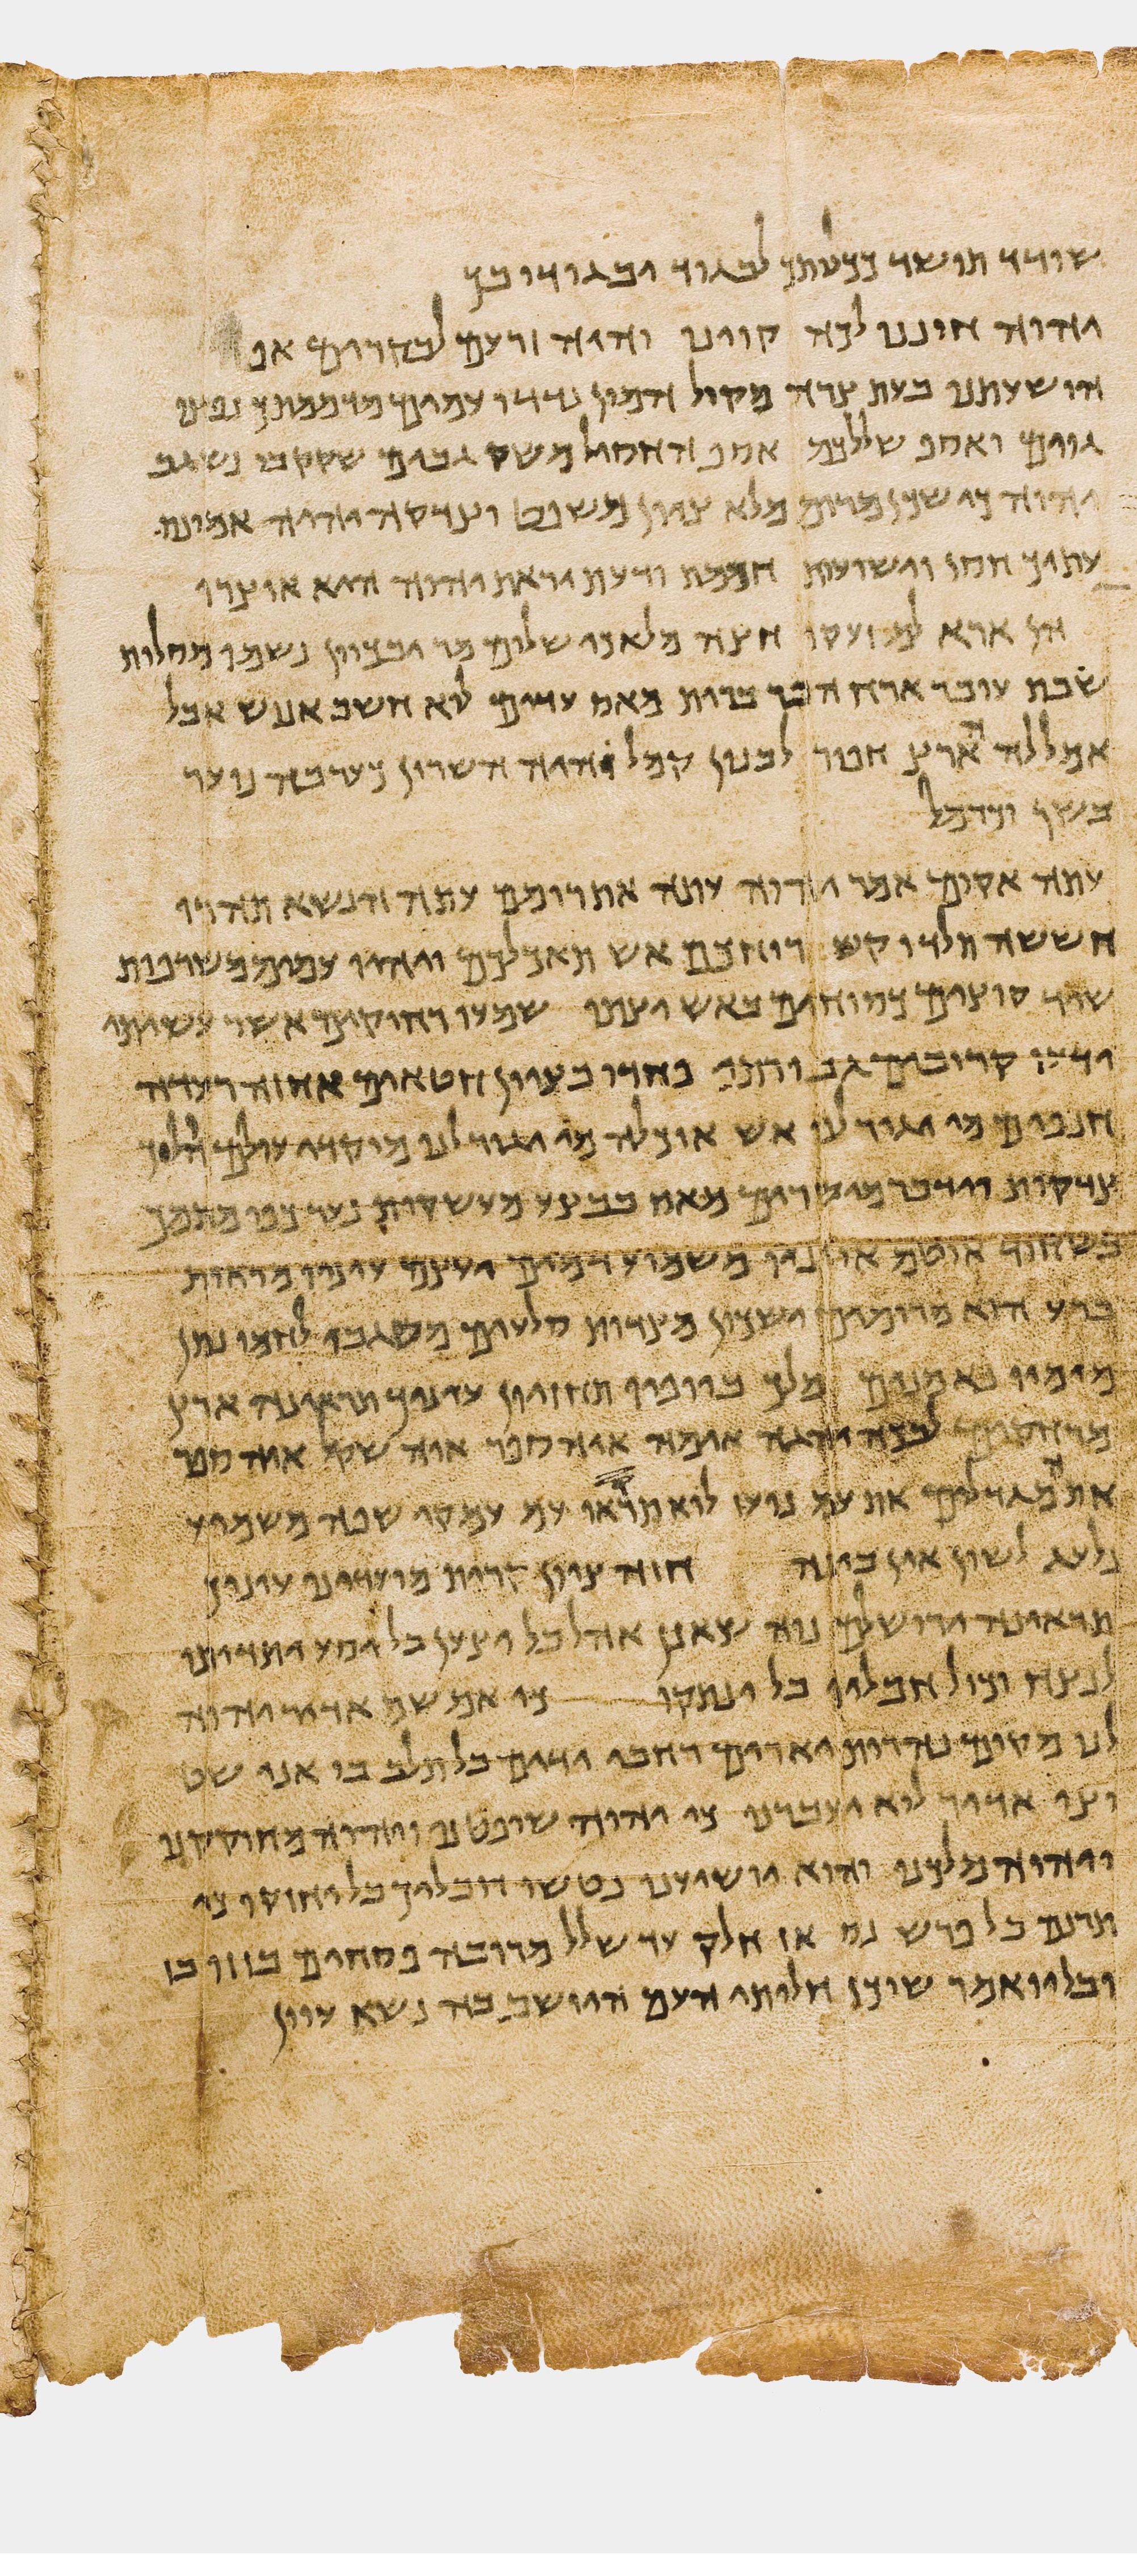 שודד תושד ככלתך לבגוד יבגודו בך
יהוה חוננו לכה קוינו והיה זרעם לבקרים אף
ישועתנו בעת צרה מקול המון נדדו עמים מדממתך נפצו
גוים ואסף שללכם אסף החסיל משק גבים שקק בו נשגב
יהוה כי שוכן מרום מלא ציון משפט וצדקה יהיה אמונת
עתיך חסן וישועות חכמת ודעת יראת יהוה היא אוצרו
הן אראלם זעקו חוצה מלאכי שלום מר יבכיון נשמו מסלות
שבת עובר ארח הפר ברית מאס עדים לוא חשב אנוש אבל
אמללה הארץ חפר לבנון קמל והיה השרון כערבה נוער
בשן וכרמל
עתה אקום אמר יהוה עתה אתרומם עתה אנשא תהרו
חששה תלדו קש רוחכם אש תאכלכם ויהיו עמים משרפות
שיד קוצים כסוחים באש יצתו שמעו רחוקים אשר עשיתי
ידעו קרובים גבורתי פחדו בציון חטאים אחזה רעדה
חנפים מי יגור לנו אש אוכלה מי יגור לנו מוקדי עולם הולך
צדקות ודבר מישרים מאס בבצע מעשקות נער כפיו מתמך
בשחוד אוטם אוזניו משמוע דמים ועצם עיניו מראות
ברע הוא מרומים ישכון מצדות סלעים משגבו לחמו נתן
מימיו נאמנים מלך ביופיו תחזיון עיניך תראינה ארץ
מרחקים לבכה יהגה אימה איה ספר איה שקל איה ספר
את המגדלים את עם נועז לוא תראו עם עמקי שפה משמוע
נלעג לשון אין בינה חזה ציון קרית מועדינו עיניך
תראינה ירושלם נוה שאנן אהל בל יצען בל יסע יתדותיו
לנצח וכול חבליו בל ינתקו כי אם שם אדיר יהוה
לנו מקום נהרים יארים רחבי ידים בל תלך בו אני שט
וצי אדיר לוא יעברנו כי יהוה שופטנו ויהוה מחוקקנו
ויהוה מלכנו והוא יושיענו נטשו חבליך בל יחזקו כן
תרנם בל פרש נס אז חלק עד שלל מרובה פסחים בזזו בז
ובל יואמר שוכן חליתי העם היושב בה נשא עוון